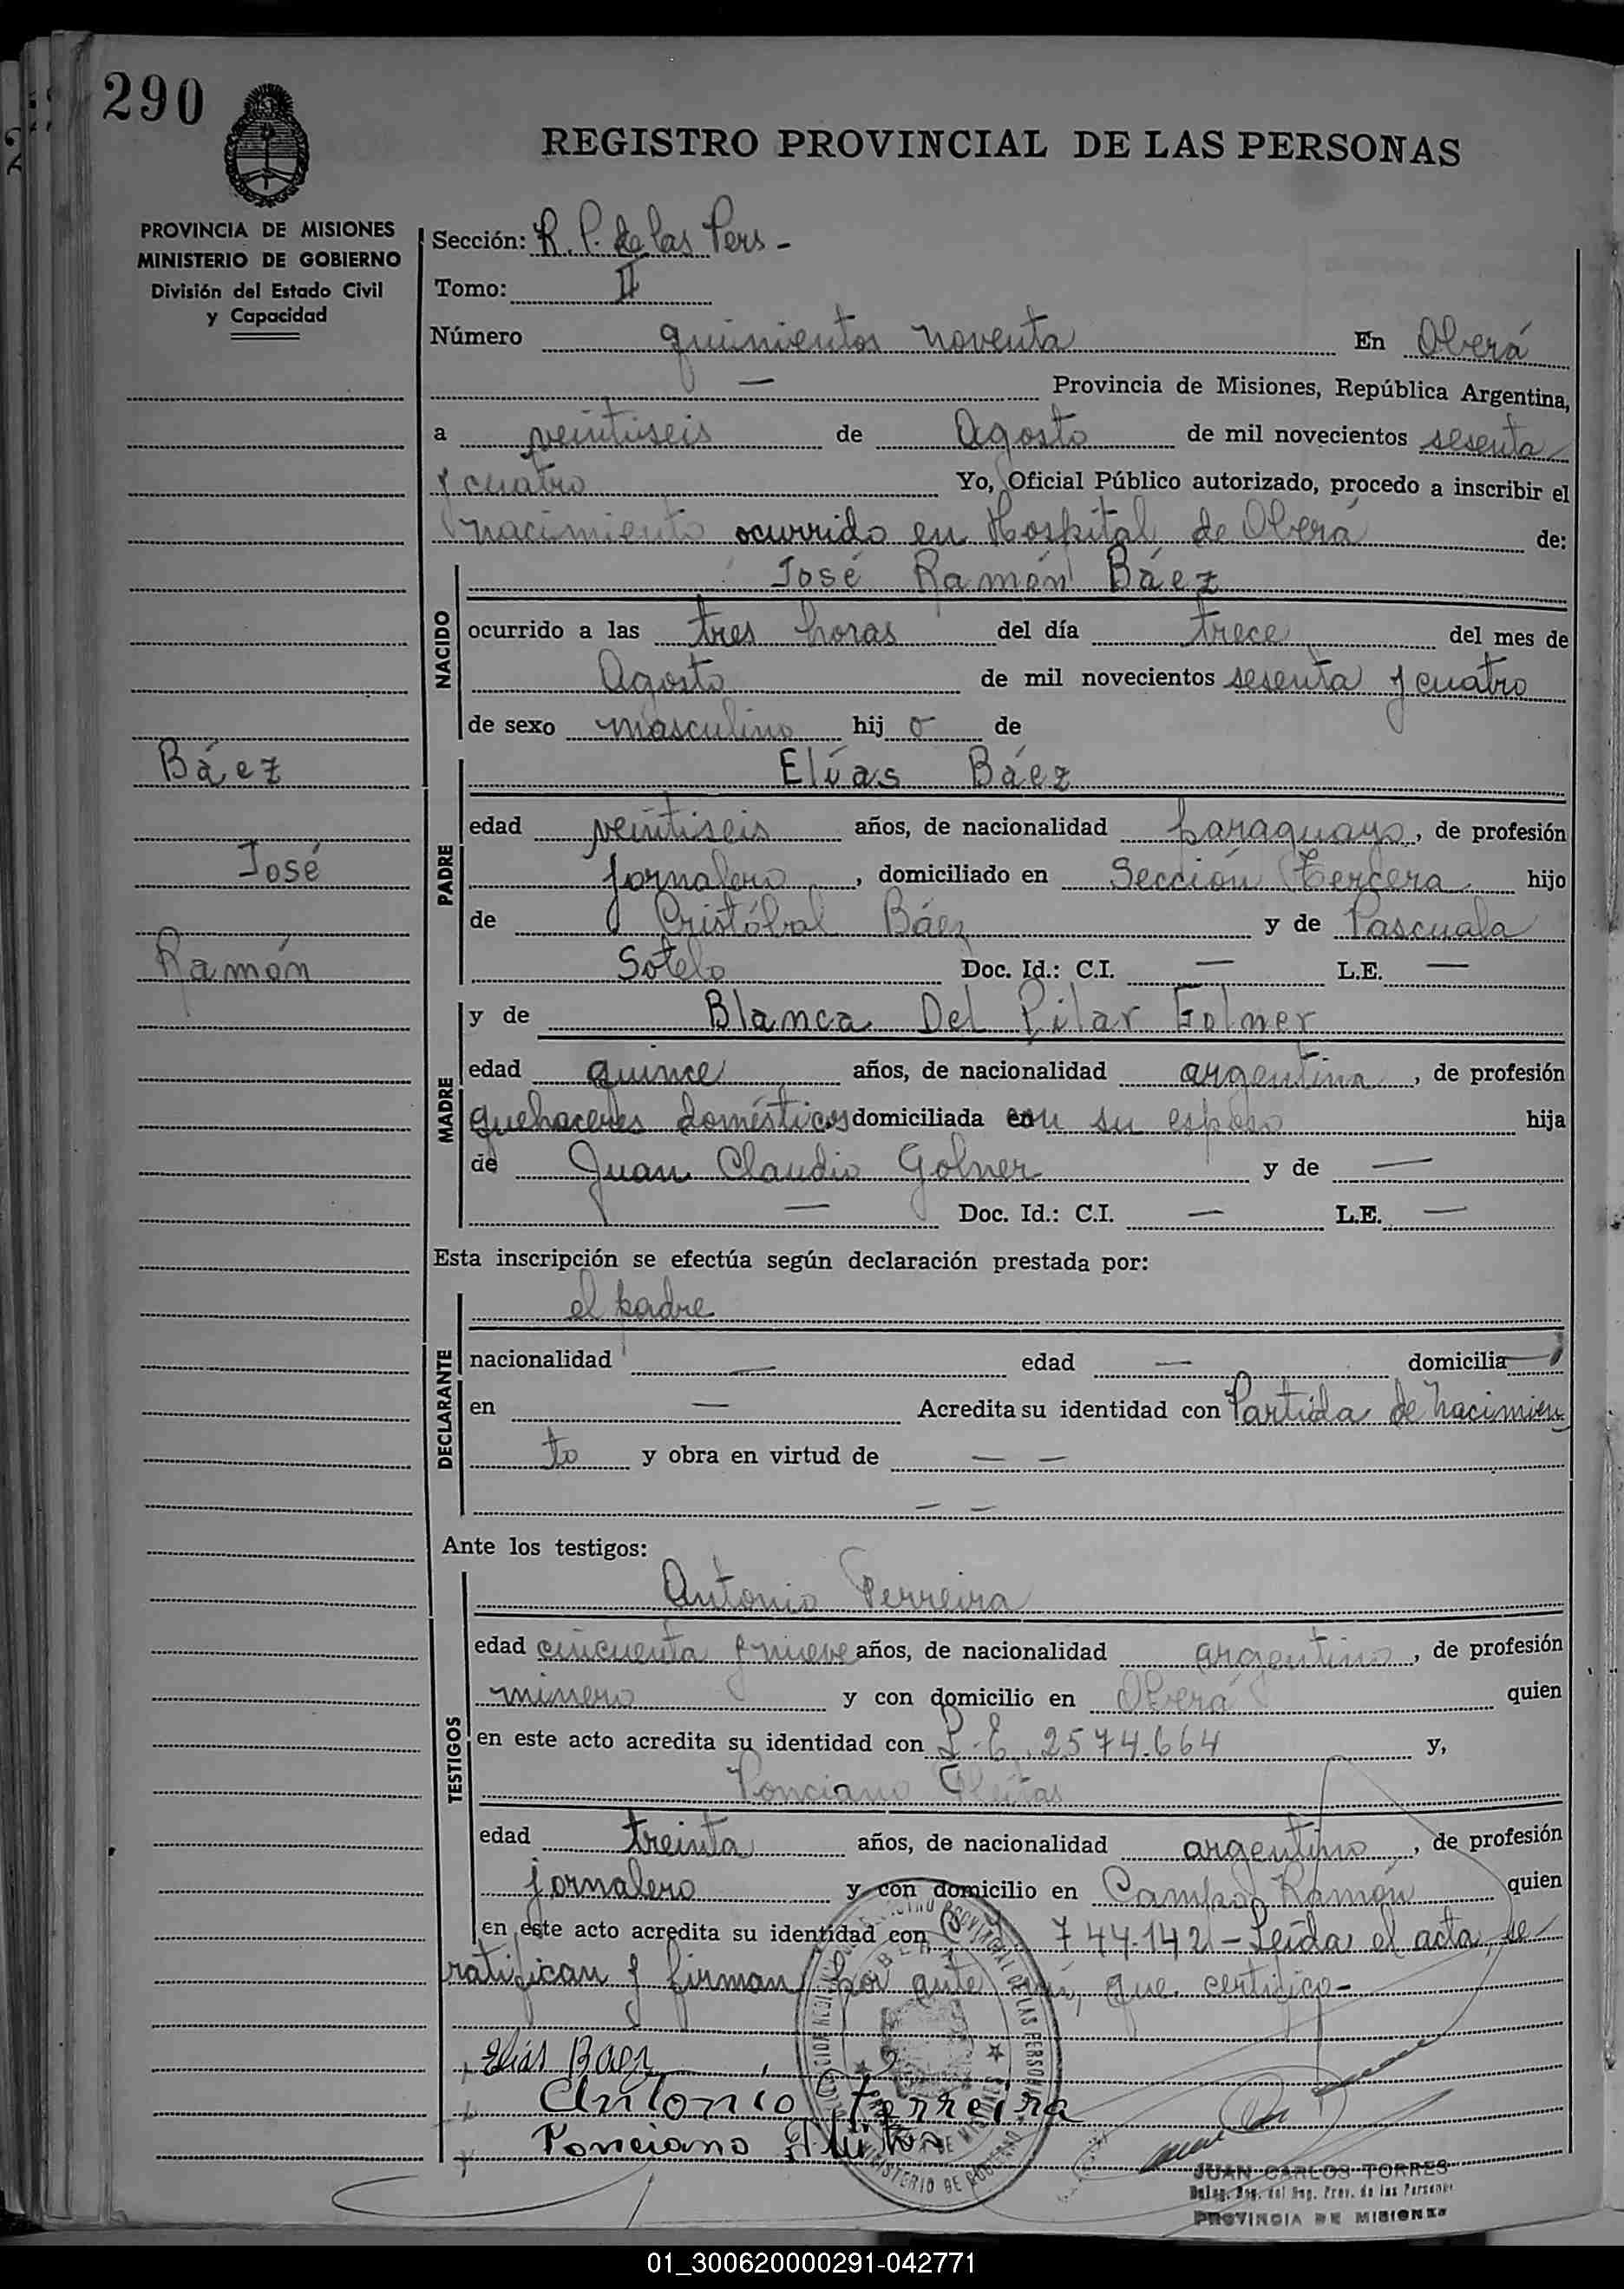 290
REGISTRO PROVINCIAL DE LAS PERSONAS
PROVINCIA DE MISIONES
MINISTERIO DE GOBIERNO
División del Estado Civil
y Capacidad
Sección: R. P. de las Pers -
Tomo: II
Número quinientos noventa En Oberá
— Provincia de Misiones, República Argentina,
a veintiseis de Agosto de mil novecientos sesenta
y cuatro Yo, Oficial Público autorizado, procedo a inscribir el
nacimiento ocurrido en Hospital de Oberá de:
NACIDO
José Ramón Báez
ocurrido a las tres horas del día trece del mes de
Agosto de mil novecientos sesenta y cuatro
de sexo masculino hij o de
Báez
José
Ramón
PADRE
Elías Báez
edad veintiseis años, de nacionalidad paraguayo, de profesión
jornalero, domiciliado en Sección Tercera hijo
de Cristóbal Báez y de Pascuala
Sotelo Doc. Id.: C.I. — L.E. —
MADRE
y de Blanca Del Pilar Golner
edad quince años, de nacionalidad argentina, de profesión
quehaceres domésticos domiciliada con su esposo hija
de Juan Claudio Golner y de —
— Doc. Id.: C.I. — L.E. —
Esta inscripción se efectúa según declaración prestada por:
DECLARANTE
el padre
nacionalidad — edad — domicilia—
en — Acredita su identidad con Partida de nacimien
to y obra en virtud de — —
— —
Ante los testigos:
TESTIGOS
Antonio Ferreira
edad cincuenta y nueve años, de nacionalidad argentino, de profesión
minero y con domicilio en Oberá quien
en este acto acredita su identidad con L. E. 2574.664 y,
Ponciano Fleitas
edad treinta años, de nacionalidad argentino, de profesión
jornalero y con domicilio en Campo Ramón quien
en este acto acredita su identidad con C. I. 744.142 - Leída el acta, se
ratifican y firman por ante mí, que certifico -
Elías Baez
Antonio Ferreira
Ponciano Fleitas
JUAN CARLOS TORRES
Deleg. Reg. del Reg. Prov. de las Personas
PROVINCIA DE MISIONES
01_300620000291-042771